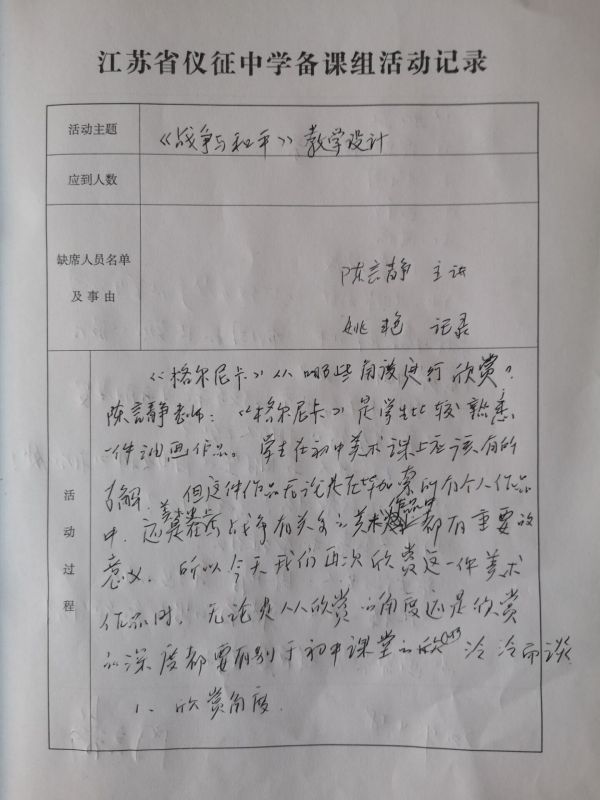 江苏省仪征中学备课组活动记录
活动主题
《战争与和平》教学设计
应到人数
缺席人员名单
及事由
陈言静 主讲
姚艳 记录
活动过程
《格尔尼卡》从哪些角度进行欣赏?
陈言静老师:《格尔尼卡》是学生比较熟悉
一件油画作品。学生在初中美术课上应该有所
了解,但这件作品无论是在毕加索的个人作品
中,还是在与战争有关的美术作品中都有重要的
意义,所以今天我们再次欣赏这一件美术
作品时,无论是从欣赏的角度还是欣赏
的深度都要有别于初中课堂的欣赏 泛泛而谈
1、欣赏角度.